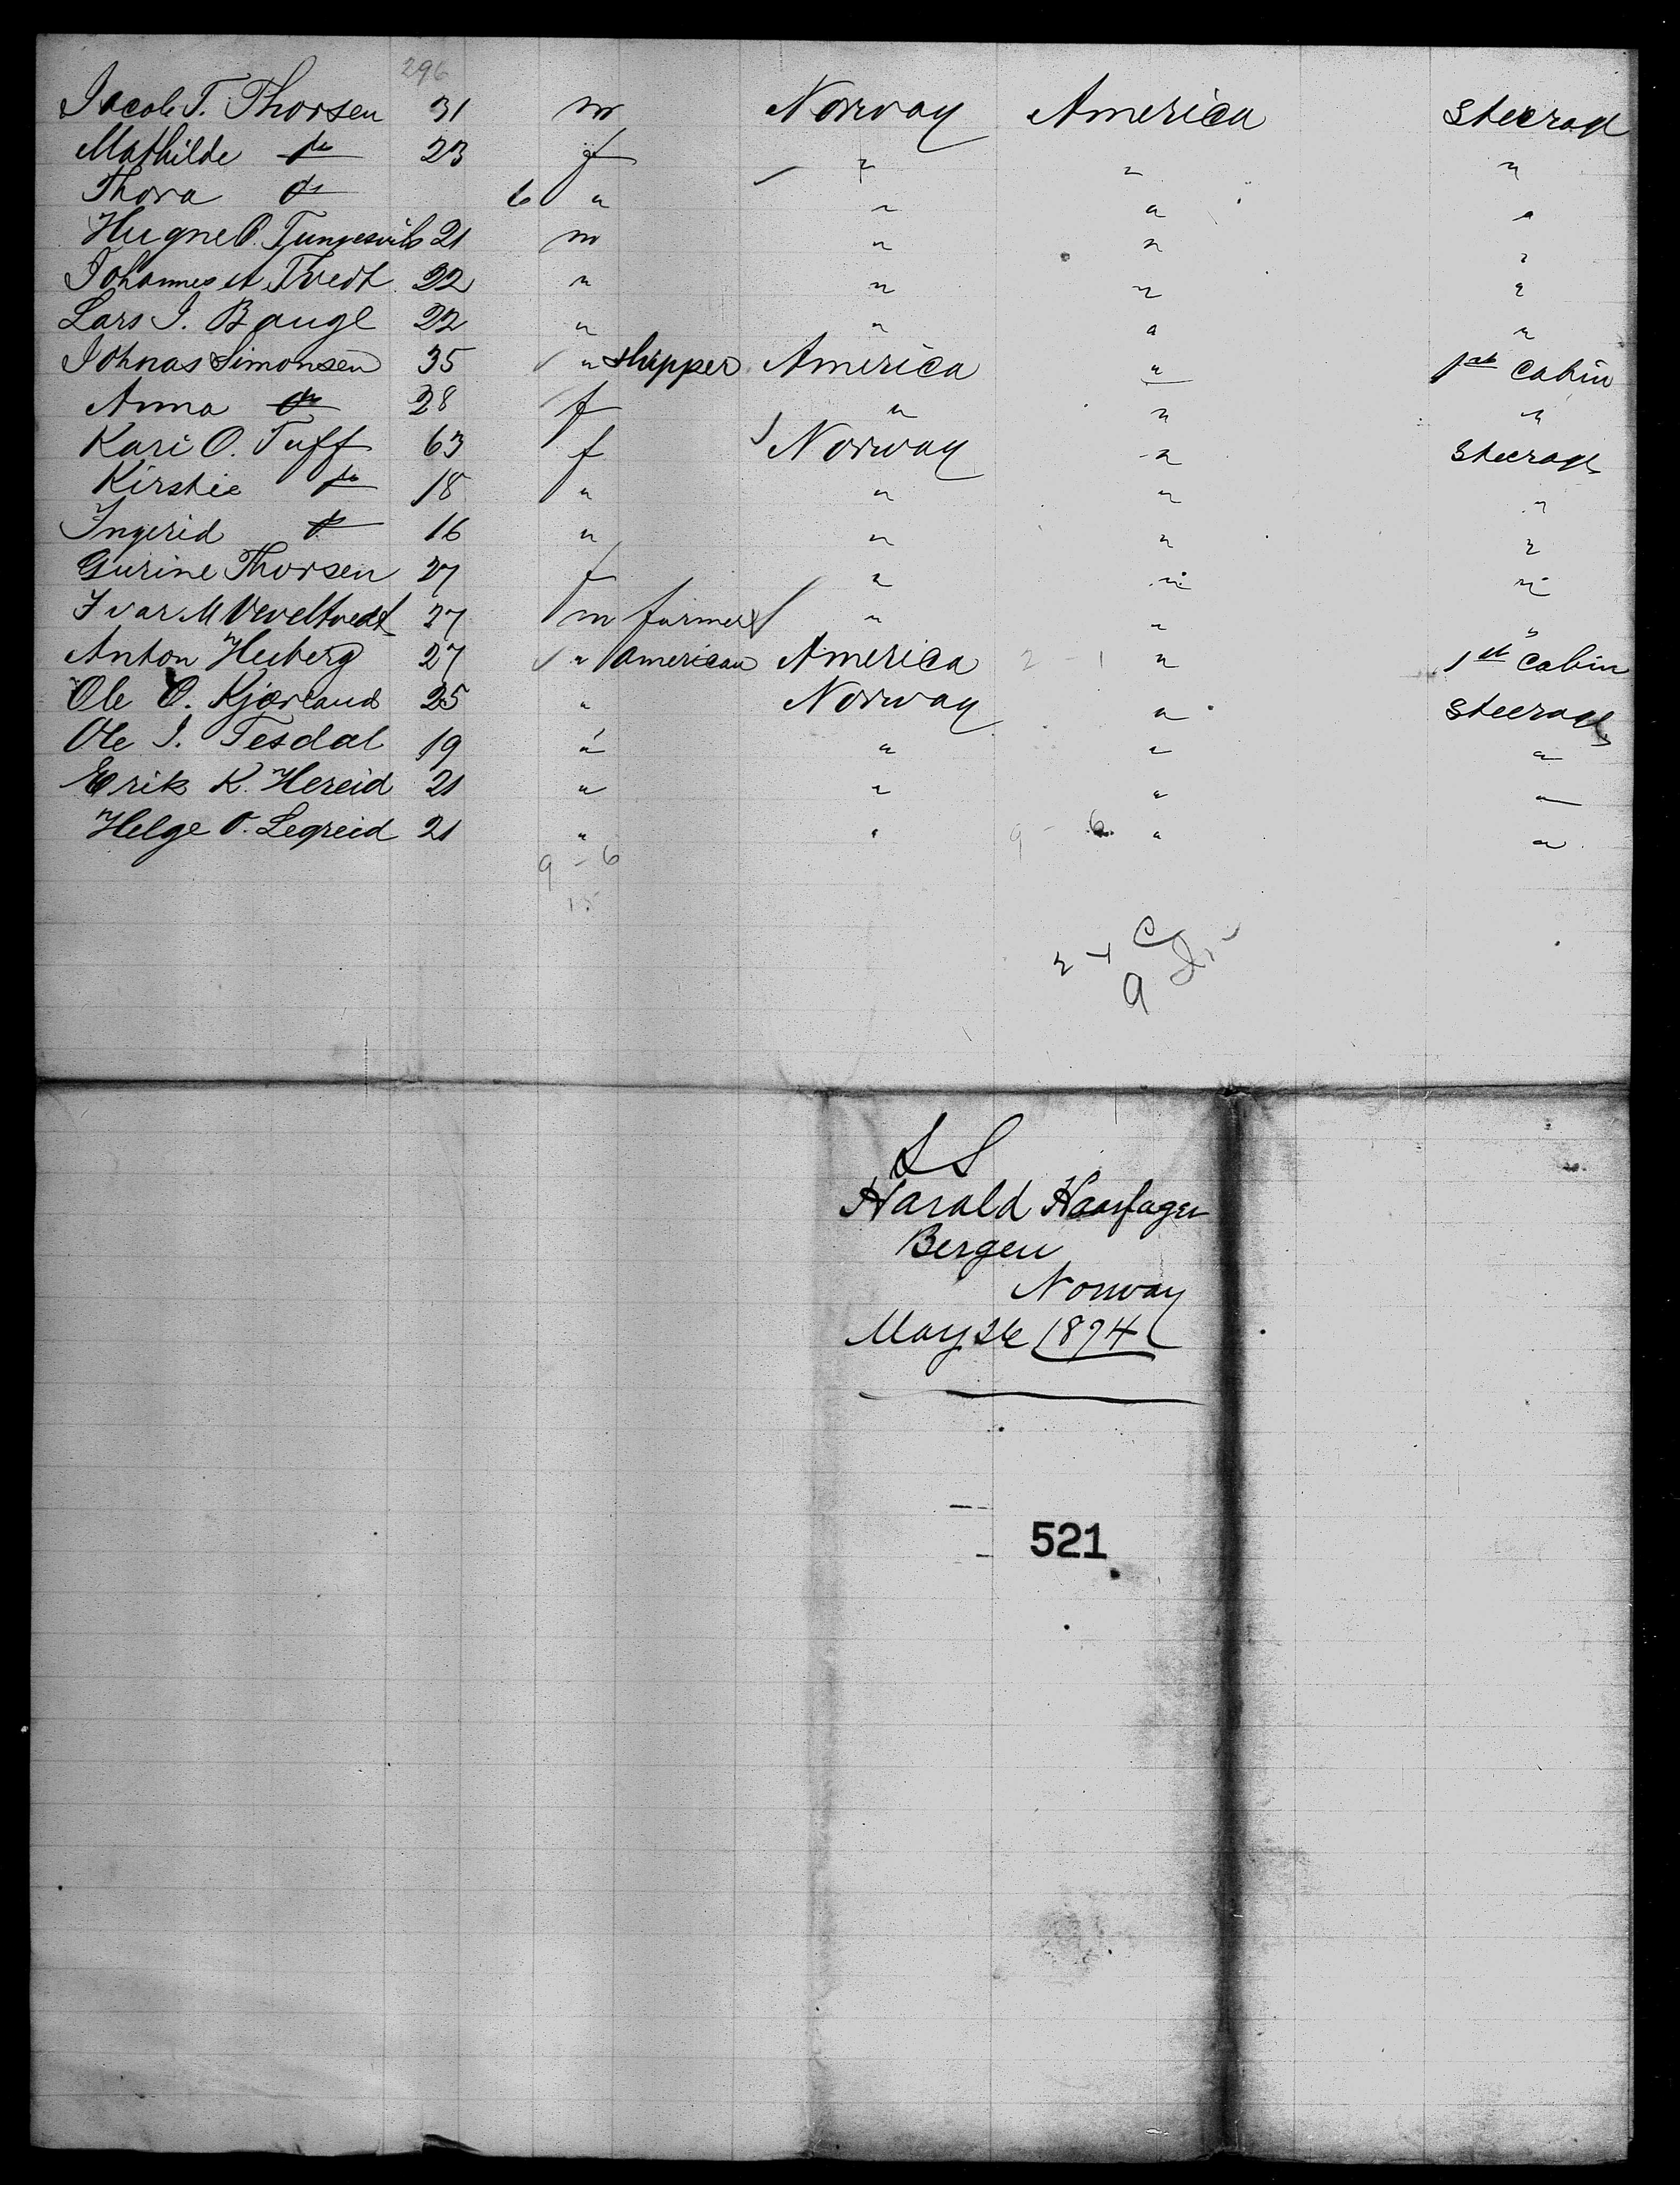 296
Jacob T. Thorsen 31 m Norway America Steerage
Mathilde do 23 f " " "
Thora do 6 " " " "
Hugne O. 21 m " " "
Johannes A Tvedt 22 " " " "
Lars J. Bauge 22 " " " "
Johnas Simonsen 35 " Skipper America " 1st Cabin
Anna do 28 f " " "
Kari O. Tuff 63 f Norway " Steerage
Kirstie do 18 " " " "
Ingerid do 16 " " " "
Gurine Thorsen 27 f " " "
Ivar M 27 m farmer " " "
Anton Heiberg 27 " American America 2 - 1 " 1st Cabin
Ole O. Kjærland 25 " Norway " Steerage
Ole J. Tesdal 19 " " " "
Erik K. Hereid 21 " " " "
Helge O. Legreid 21 " " 9 - 6 " "
9 - 6
15
9
SS
Harald Haarfager
Bergen
Norway
May 26 1874
521